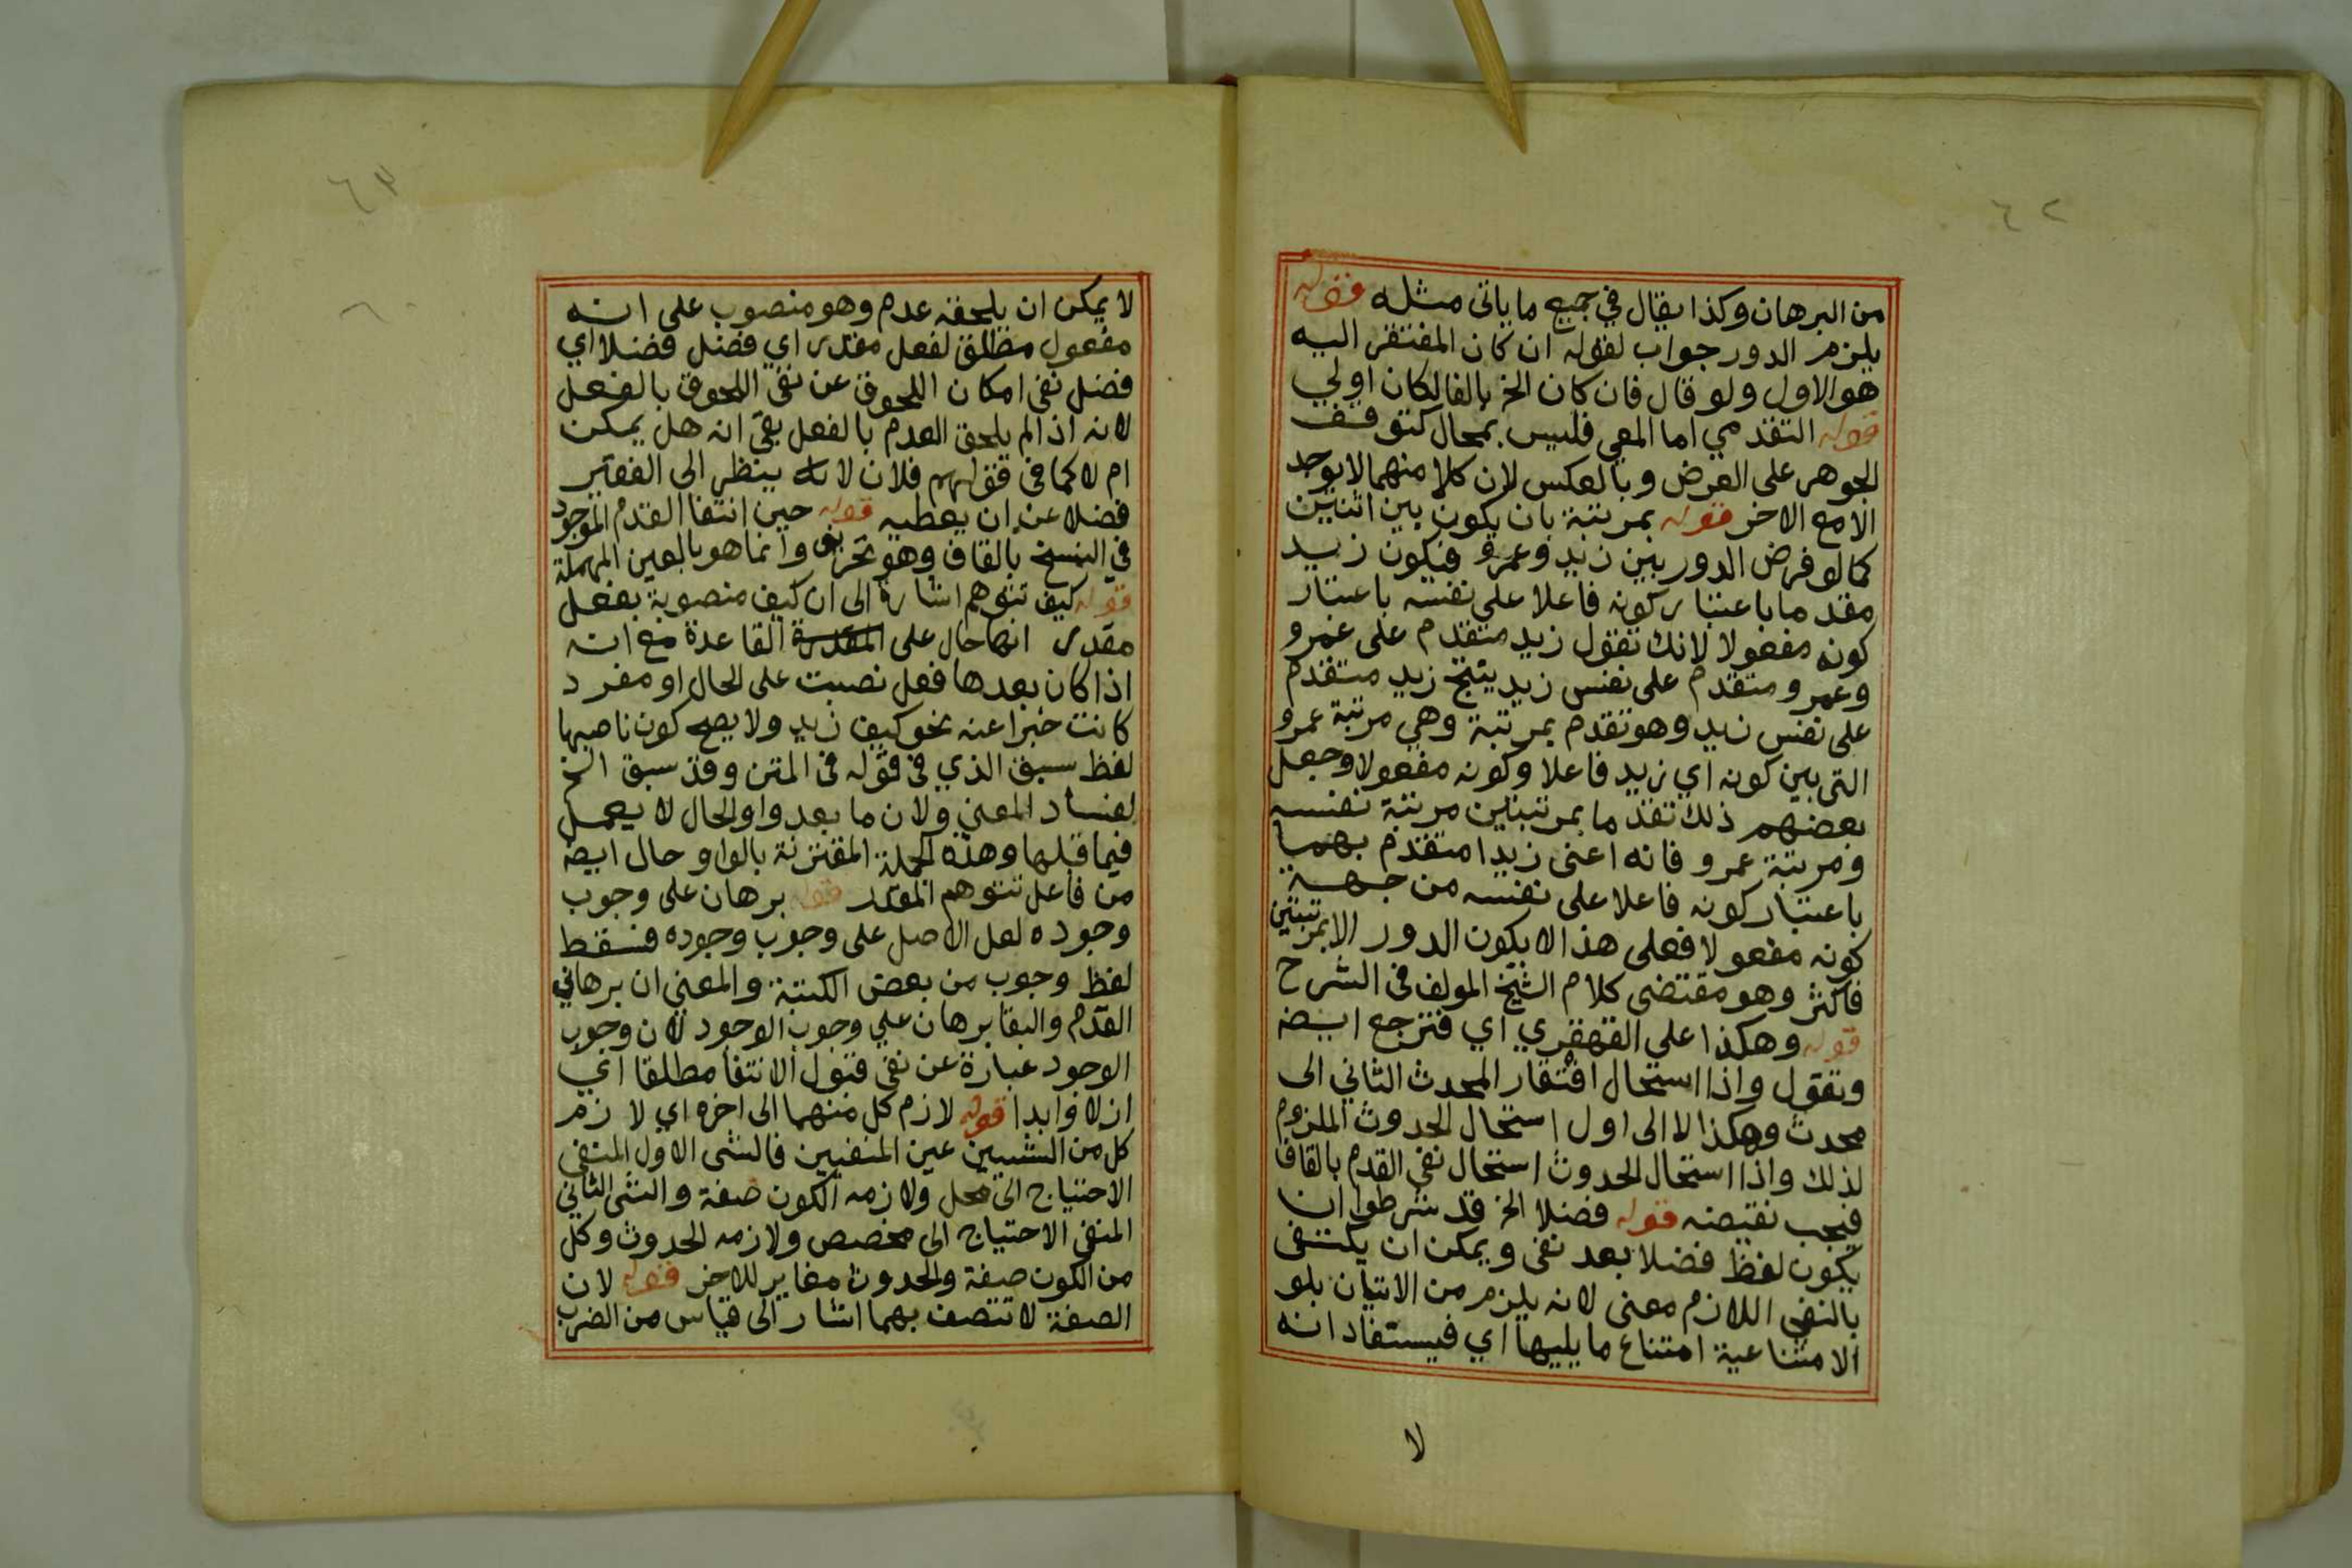 ٦٢
من البرهان وكذا يقال في جميع ما ياتى مثله قوله
يلزم الدور جواب لقوله ان كان المفتقر اليه
هو الاول ولو قال فان كان الخ بالفا لكان اولي
قوله التقدمي اما المعي فليس بمحال كتوقف
الجوهر على العرض وبالعكس لان كلا منهما لا يوجد
الا مع الاخر قوله بمرتبة بان يكون بين اثنين
كما لو فرض الدور بين زيد وعمرو فيكون زيد
مقدما باعتبار كونه فاعلا على نفسه باعتبار
كونه مفعولا لانك تقول زيد متقدم على عمرو
وعمرو متقدم على نفس زيد ينتج زيد متقدم
على نفس زيد وهو تقدم بمرتبة وهي مرتبة عمرو
التى بين كونه اي زيد فاعلا وكونه مفعولا وجعل
بعضهم ذلك تقدما بمرتبتين مرتبة نفسه
ومرتبة عمرو فانه اعنى زيدا متقدم بهما
باعتبار كونه فاعلا على نفسه من جهة
كونه مفعولا فعلى هذا لا يكون الدور الا بمرتبتين
فاكثر وهو مقتضى كلام الشيخ المولف فى الشرح
قوله وهكذا علي القهقري اي فترجع ايضا
وتقول واذا استحال افتقار المحدث الثاني الى
محدث وهكذا الا الى اول استحال الحدوث الملزوم
لذلك واذا استحال الحدوث استحال نفى القدم بالقاف
فيجب نقيضه قوله فضلا الخ قد شرطوا ان
يكون لفظ فضلا بعد نفى ويمكن ان يكتفى
بالنفي اللازم معنى لانه يلزم من الاتيان بلو
الامتناعية امتناع ما يليها اي فيستفاد انه
لا
٦٣
لا يمكن ان يلحقه عدم وهو منصوب على انه
مفعول مطلق لفعل مقدر اي فضل فضلا اي
فضل نفى امكان اللحوق عن نفى اللحوق بالفعل
لانه اذا لم يلحق العدم بالفعل بقى انه هل يمكن
ام لا كما فى قولهم فلان لا ينظر الى الفقير
فضلا عن ان يعطيه قوله حين انتفا القدم الموجود
في النسخ بالقاف وهو تحريف وانما هو بالعين المهملة
قوله كيف تتوهم اشارة الى ان كيف منصوبة بفعل
مقدر انها حال على المقدرة القاعدة مع انه
اذا كان بعدها فعل نصبت على الحال او مفرد
كانت خبرا عنه نحو كيف زيد ولا يصح كون ناصبها
لفظ سبق الذي فى قوله فى المتن وقد سبق الخ
لفساد المعنى ولان ما بعد واو الحال لا يعمل
فيما قبلها وهذه الجملة المقترنة بالواو حال ايضا
من فاعل تتوهم المقدر قوله برهان على وجوب
وجوده لعل الاصل على وجوب وجوده فسقط
لفظ وجوب من بعض الكتبة والمعنى ان برهاني
القدم والبقا برهان علي وجوب الوجود لان وجوب
الوجود عبارة عن نفى قبول الانتفا مطلقا اي
ازلا وابدا قوله لازم كل منهما الى اخره اي لازم
كل من الشيئين عين المنفيين فالشى الاول المنفى
الاحتياج الى محل ولازمه الكون صفة والشى الثاني
المنفى الاحتياج الى مخصص ولازمه الحدوث وكل
من الكون صفة والحدوث مغاير للاخر قوله لان
الصفة لا تتصف بهما اشار الى قياس من الضرب